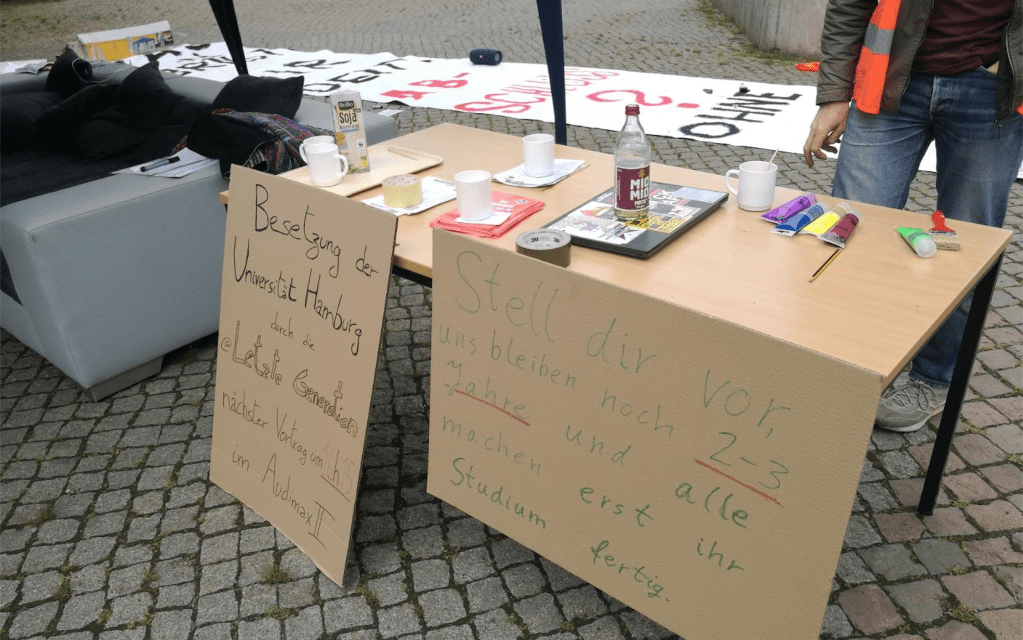 Besetzung der
Universität Hamburg
durch die
@Letzte Generation
nächster Vortrag um
im Audimax II
Stell dir vor,
uns bleiben noch 2-3
Jahre und alle
machen erst ihr
Studium fertig.
Soja
MIO
MIO
AB-
OHNE